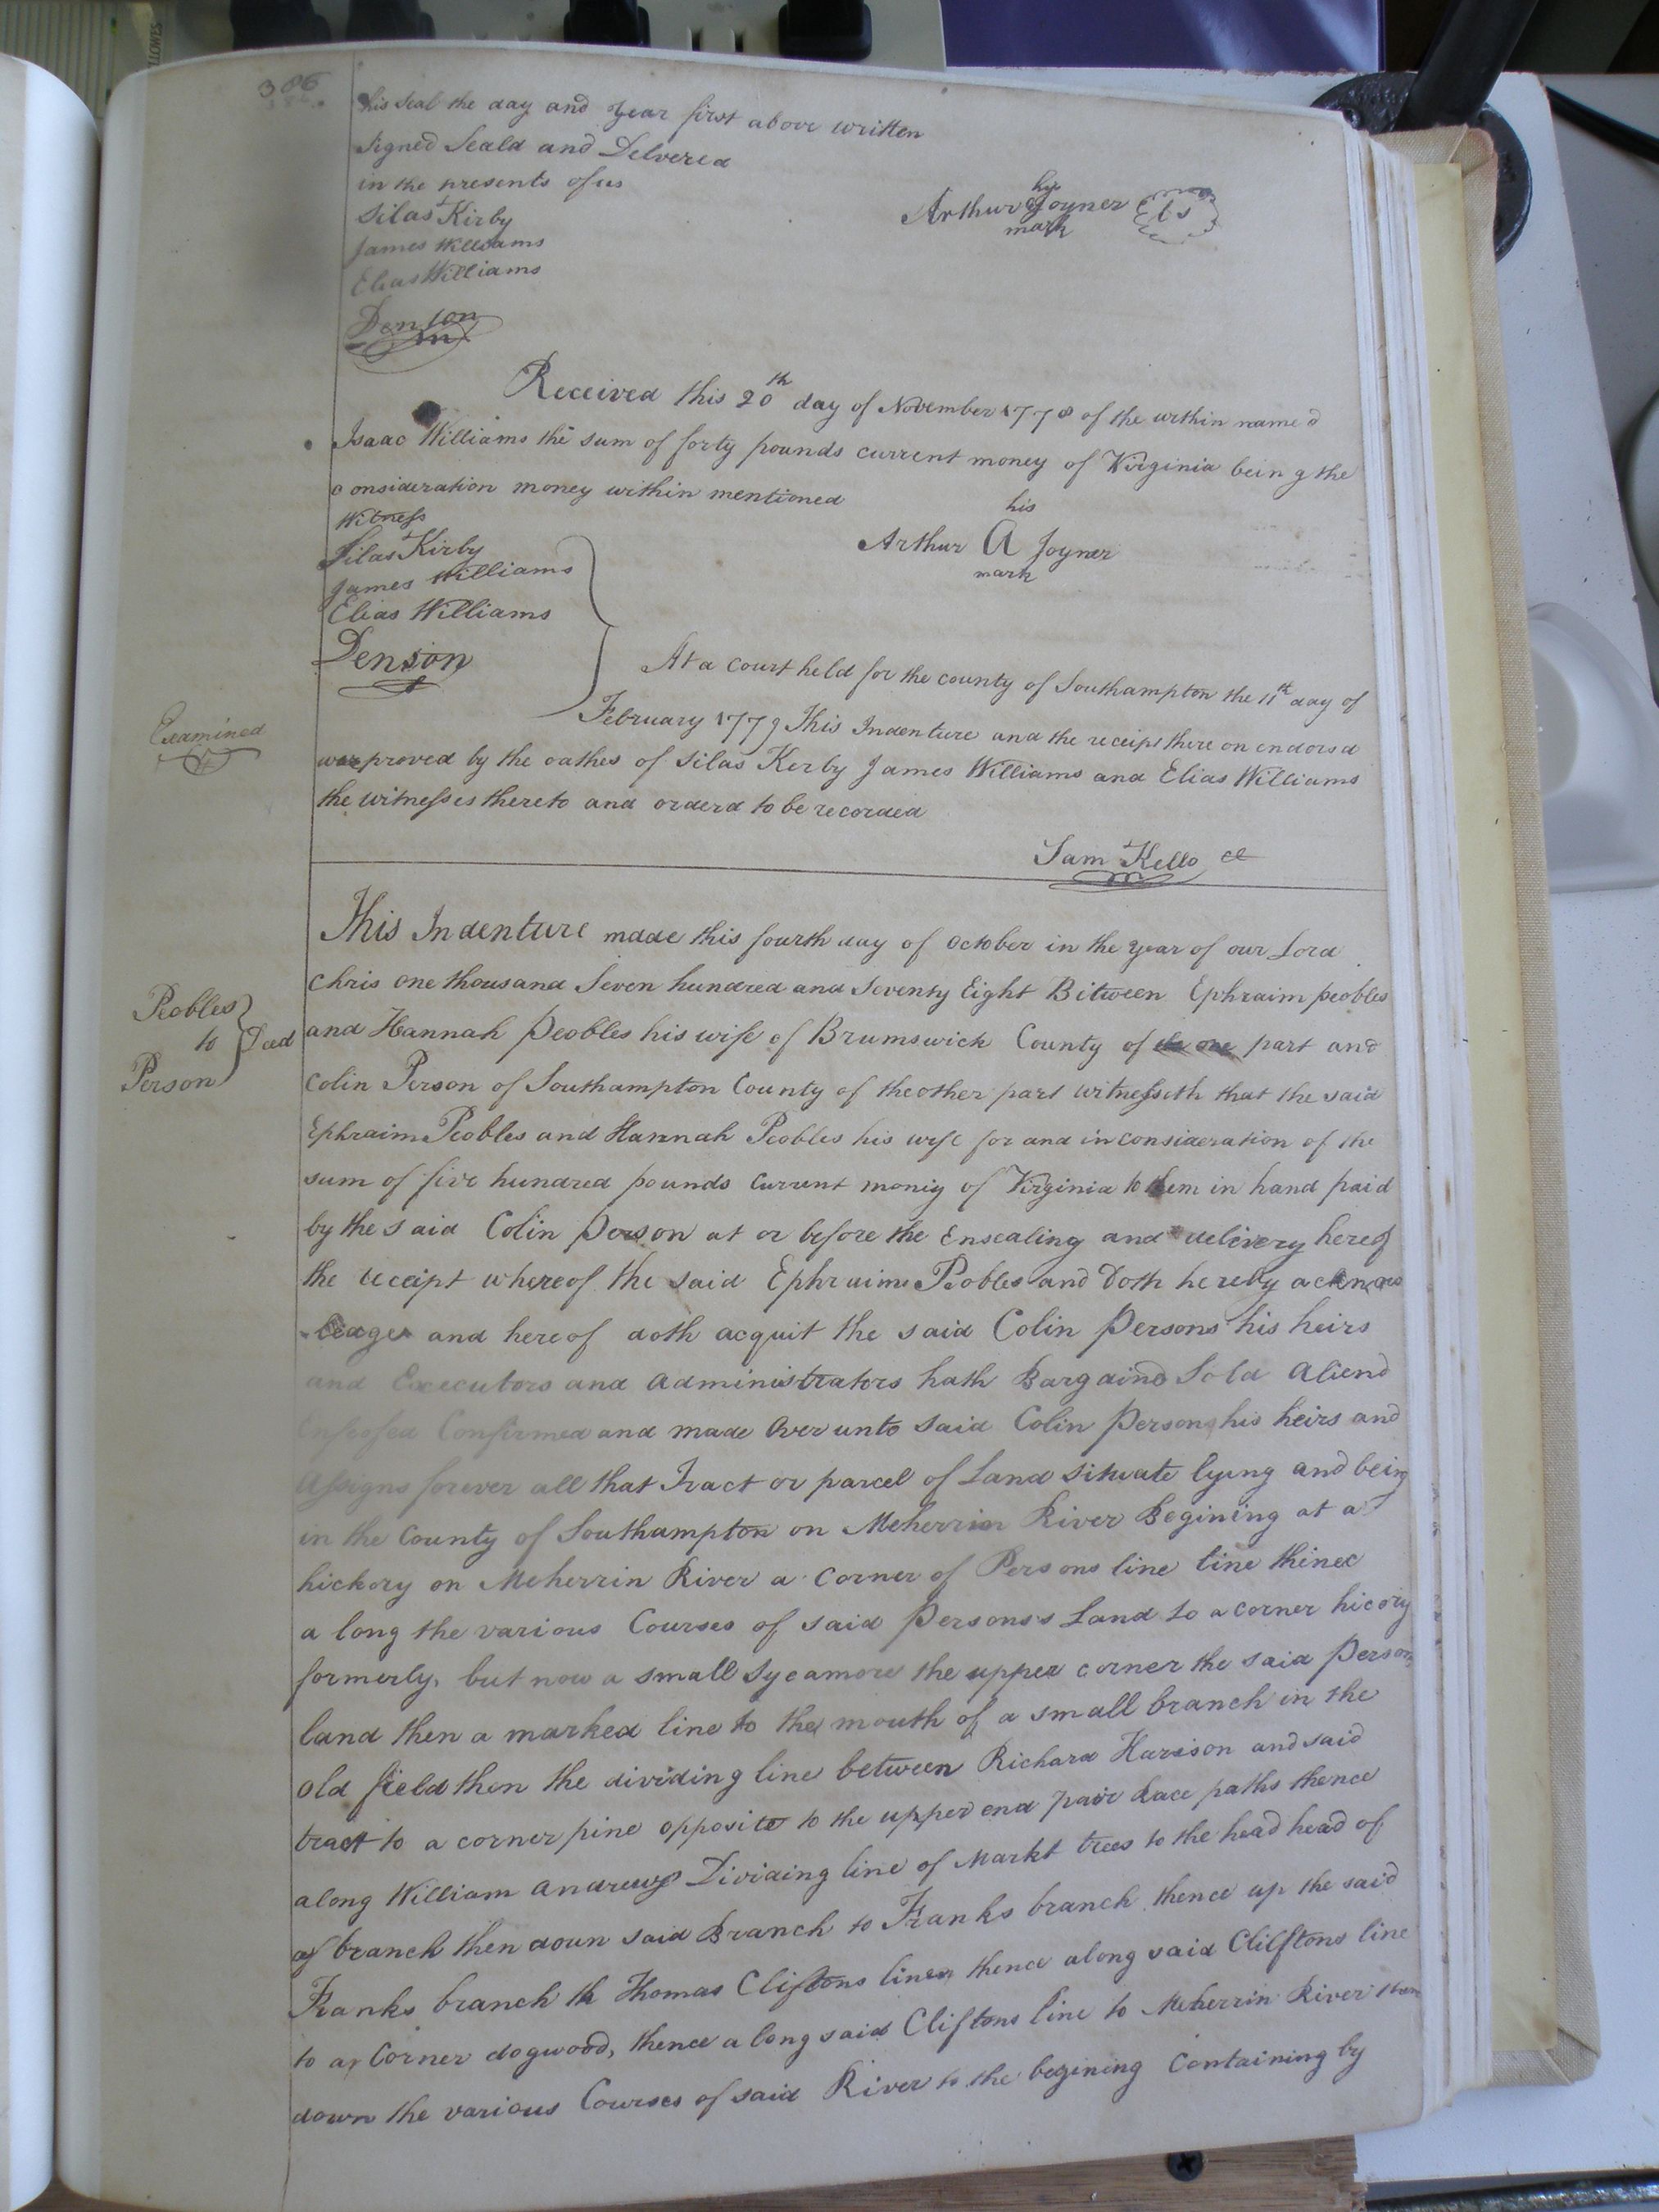 306
his seal the day and year first above written
Signed Seald and Delvered
in the presents of us
Silas Kirby
his
Arthur Joyner Ls
mark
James Williams
Elias Williams
Denson
Received this 20th day of November 1778 of the within name d
Isaac Williams the sum of forty pounds current money of Virginia being the
consideration money within mentioned
Witness
his
Silas Kirby
Arthur A Joyner
mark
James Williams
Elias Williams
Denson
At a court held for the county of Southampton the 11th day of
Examined
February 1779 This Indenture and the receipt there on endorsd
was proved by the oathes of Silas Kerby James Williams and Elias Williams
the witnesses thereto and orderd to be recorded
Sam Kello
This Indenture made this fourth day of October in the year of our Lord
Chris one thousand Seven hundred and Seventy Eight Bitween Ephraim peobles
Peobles
to Deed
Person
and Hannah Peobles his wife of Brumswick County of the one part and
Colin Person of Southampton County of the other part witnesseth that the said
Ephraim Peobles and Hannah Peobles his wife for and in consideration of the
sum of five hundred pounds Current moniy of Virginia to them in hand paid
by the said Colin Person at or before the Ensealing and delivery hereof
the receipt whereof the said Ephraim Peobles and Doth hereby acknow
ledge and hereof doth acquit the said Colin Persons his heirs
and Executors and administrators hath Bargaind Sold aliend
Enfeofed Confirmed and made over unto said Colin Persons his heirs and
Assigns forever all that Tract or parcel of Land situate lying and being
in the County of Southampton on Meherrin River Begining at a
hickory on Meherrin River a Corner of Persons line line thinec
a long the various Courses of said Persons's Land to a corner hicory
formerly, but now a small sycamore the upper corner the said Persons
land then a marked line to the mouth of a small branch in the
old field then the dividing line between Richard Harison and said
tract to a corner pine opposite to the upper end pair Race paths thence
along William andrews Dividing line of Markt trees to the head head of
of branch then doun said Branch to Franks branch thence up the said
Franks branch th Thomas Cliftons lines thence along said Clilftons line
to a Corner dogwood, thence a long said Cliftons line to Meherrin River then
down the various Courses of said River to the begining Containing by